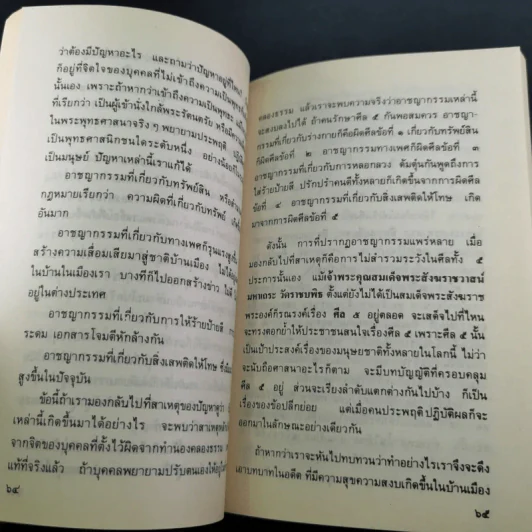 ว่าต้องมีปัญหาอะไร และถามว่าปัญหาอยู่ที่ไหน
ก็อยู่ที่จิตใจของบุคคลที่ไม่เข้าถึงความเป็นพุทธ
นั้นเอง เพราะถ้าหากว่าเข้าถึงความเป็นพุทธะ
ที่เรียกว่า เป็นผู้เข้านั่งใกล้พระรัตนตรัย หรือมี
ในพระพุทธศาสนาจริง ๆ พยายามประพฤติ
เป็นพุทธศาสนิกชนใดระดับหนึ่ง อย่างน้อย
เป็นมนุษย์ ปัญหาเหล่านี้เราแก้ได้
อาชญากรรมที่เกี่ยวกับทรัพย์สิน หรือ
กฎหมายเรียกว่า ความผิดที่เกี่ยวกับทรัพย์
อันมาก
อาชญากรรมที่เกี่ยวกับทางเพศก็รุนแรง
สร้างความเสื่อมเสียมาสู่ชาติบ้านเมือง ไม่ใช่
ในบ้านในเมืองเรา บางทีก็ไปออกสร้างข่าว
อยู่ในต่างประเทศ
อาชญากรรมที่เกี่ยวกับการให้ร้ายป้ายสี
ระดม เอกสารโจมตีหักล้างกัน
อาชญากรรมที่เกี่ยวกับสิ่งเสพติดให้โทษ
สูงขึ้นในปัจจุบัน
ข้อนี้ถ้าเรามองกลับไปที่สาเหตุของปัญหาว่า
เหล่านี้เกิดขึ้นมาได้อย่างไร จะพบว่าสาเหตุ
จากจิตของบุคคลที่ตั้งไว้ผิดจากทำนองคลองธรรม
แท้ที่จริงแล้ว ถ้าบุคคลพยายามปรับตนเองให้
๖๔
คลองธรรม แล้วเราจะพบความจริงว่าอาชญากรรมเหล่านี้
จะสงบลงไปได้ ถ้าคนรักษาศีล ๕ กันพอสมควร อาชญา-
กรรมที่เกี่ยวกับร่างกายก็คือผิดศีลข้อที่ ๑ เกี่ยวกับทรัพย์สิน
ก็ผิดศีลข้อที่ ๒ อาชญากรรมที่เกี่ยวกับทางเพศก็ผิดศีลข้อที่ ๓
อาชญากรรมที่เกี่ยวกับการหลอกลวง ต้มตุ๋นกันพูดถึงการ
ใส่ร้ายป้ายสี ปรักปรำคนดีทั้งหลายก็เกิดขึ้นจากการผิดศีล
ข้อที่ ๔ อาชญากรรมที่เกี่ยวกับสิ่งเสพติดให้โทษ เกิด
มาจากการผิดศีลข้อที่ ๕
ดังนั้น การที่ปรากฏอาชญากรรมแพร่หลาย เมื่อ
มองกลับไปที่สาเหตุก็คือการไม่สำรวมระวังในศีลทั้ง ๕
ประการนั้นเอง แม้เจ้าพระคุณสมเด็จพระสังฆราชวาสน์
มหาเถระ วัดราชบพิธ ตั้งแต่ยังไม่ได้เป็นสมเด็จพระสังฆราช
พระองค์ก็รณรงค์เรื่อง ศีล ๕ อยู่ตลอด จะเสด็จไปที่ไหน
จะทรงตอกย้ำให้ประชาชนสนใจเรื่องศีล ๕ เพราะศีล ๕ นั้น
เป็นเป้าประสงค์เรื่องของมนุษยชาติทั้งหลายในโลกนี้ ไม่ว่า
จะนับถือศาสนาอะไรก็ตาม จะมีบทบัญญัติที่ครอบคลุม
ศีล ๕ อยู่ ส่วนจะเรียงลำดับแตกต่างกันไปบ้าง ก็เป็น
เรื่องของข้อปลีกย่อย แต่เมื่อคนประพฤติปฏิบัติผลก็จะ
ออกมาในลักษณะอย่างเดียวกัน
ถ้าหากว่าเราจะหันไปทบทวนว่าทำอย่างไรเราจึงจะดึง
เอาบทบาทในอดีต ที่มีความสุขความสงบเกิดขึ้นในบ้านเมือง
๖๕